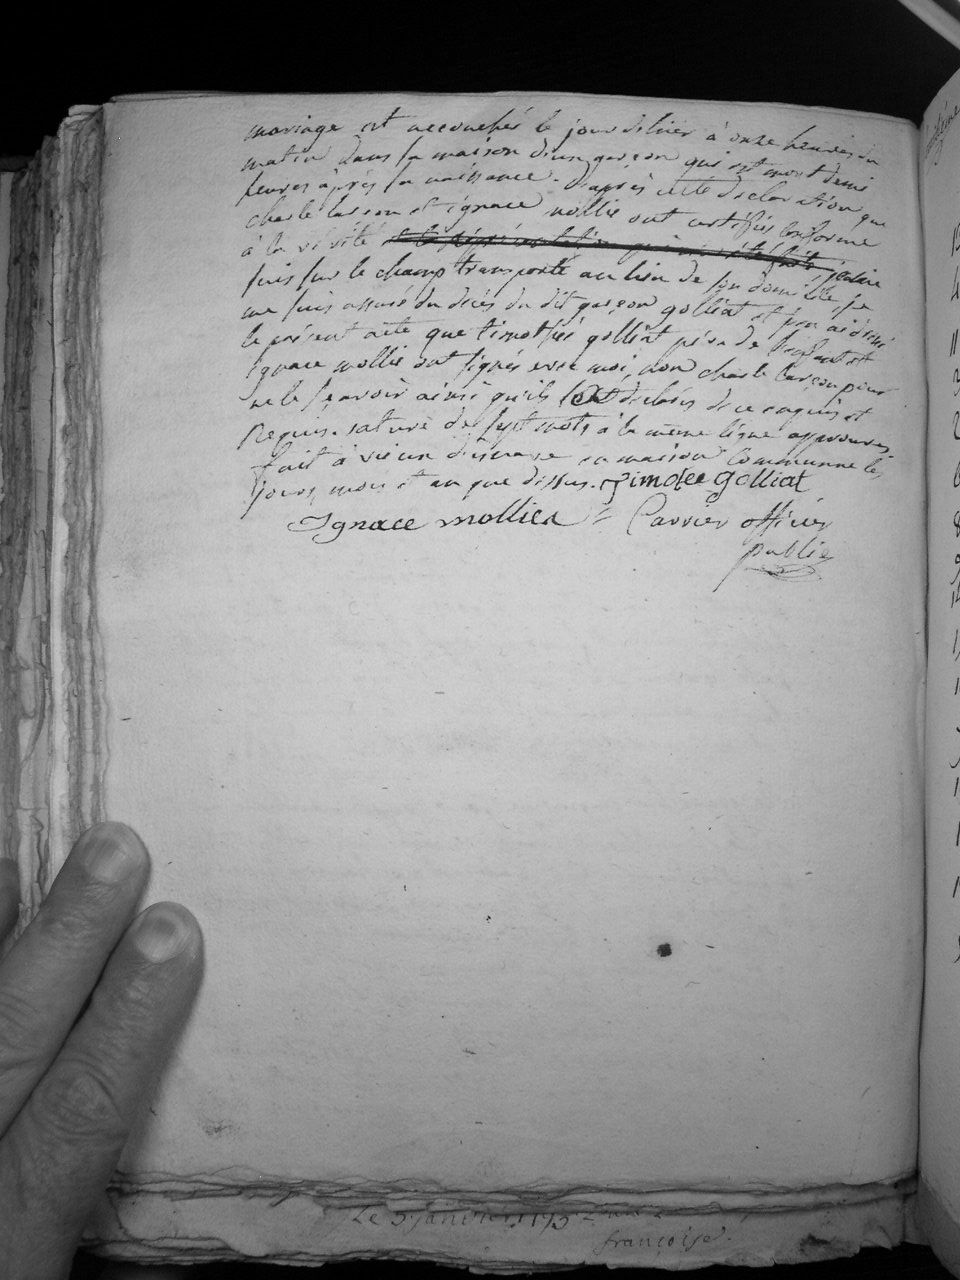 mariage est accouchés le jour dihier à onze heures du
matin dans sa maison d'un garçon qui est mort demi
heures après sa naissance. D'après cette declaration que
charle larson et ignace mollie ont certifiés conforme
à la vérité et la représentation qui a été faite je me
suis sur le champ transporté au lieu de son domicile je
me suis assuré du décés du dit garçon golliat et j'en ai dressé
le présent acte que timothés golliat père de l'enfant et
ignace mollie ont signés avec moi, non charle larçon pour
ne le sçavoir ainsi qu'ils ont déclarés de ce enquis et
requis. raturé de sept mots à la même ligne approuvés.
fait à en maison Communne les
jours, mois et an que dessus. Timotee Golliat
Ignace mollier Carrier officier
public
Le 5 janvier 175
françoise.